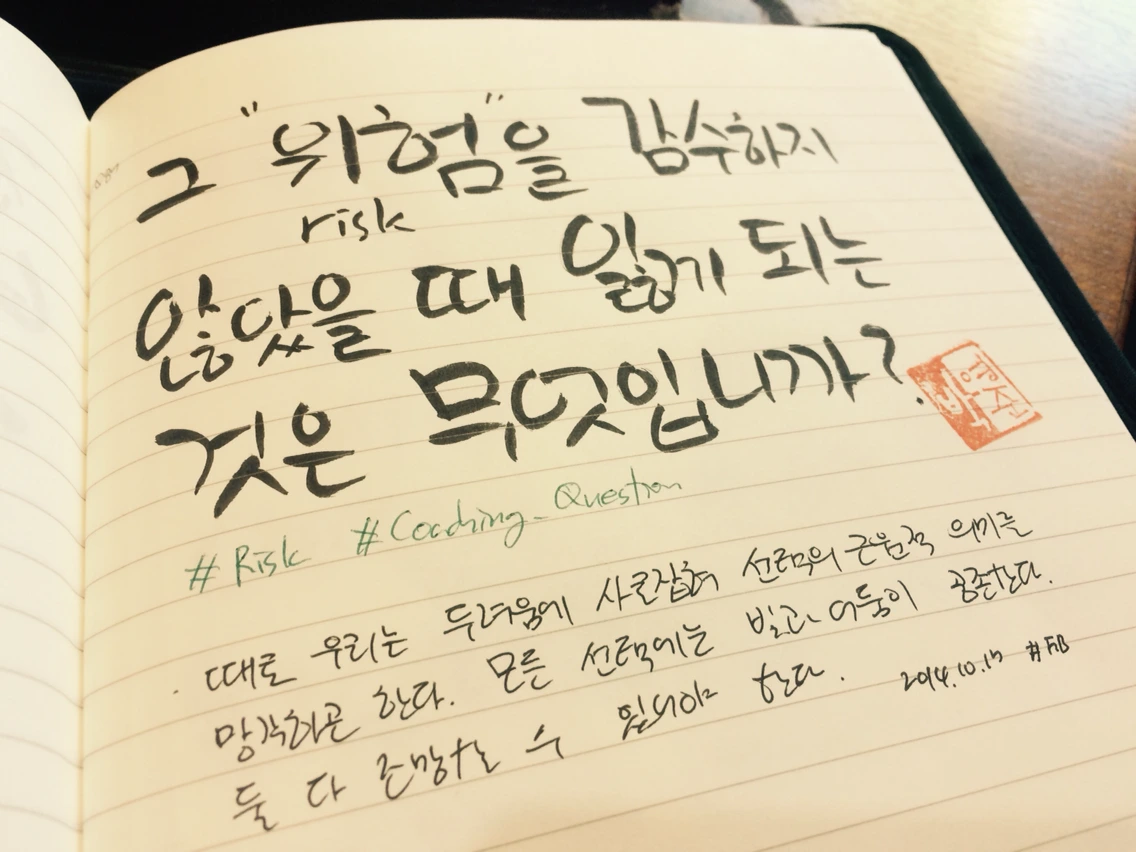 그 "위험"을 감수하지
risk
않았을 때 잃게 되는
것은 무엇입니까?
#Risk #Coaching_Question
때로 우리는 두려움에 사로잡혀 선택의 근원적 의미를
망각하곤 한다. 모든 선택에는 빛과 어둠이 공존한다.
둘 다 조망할 수 있어야 한다. 2014.10.17 #FB